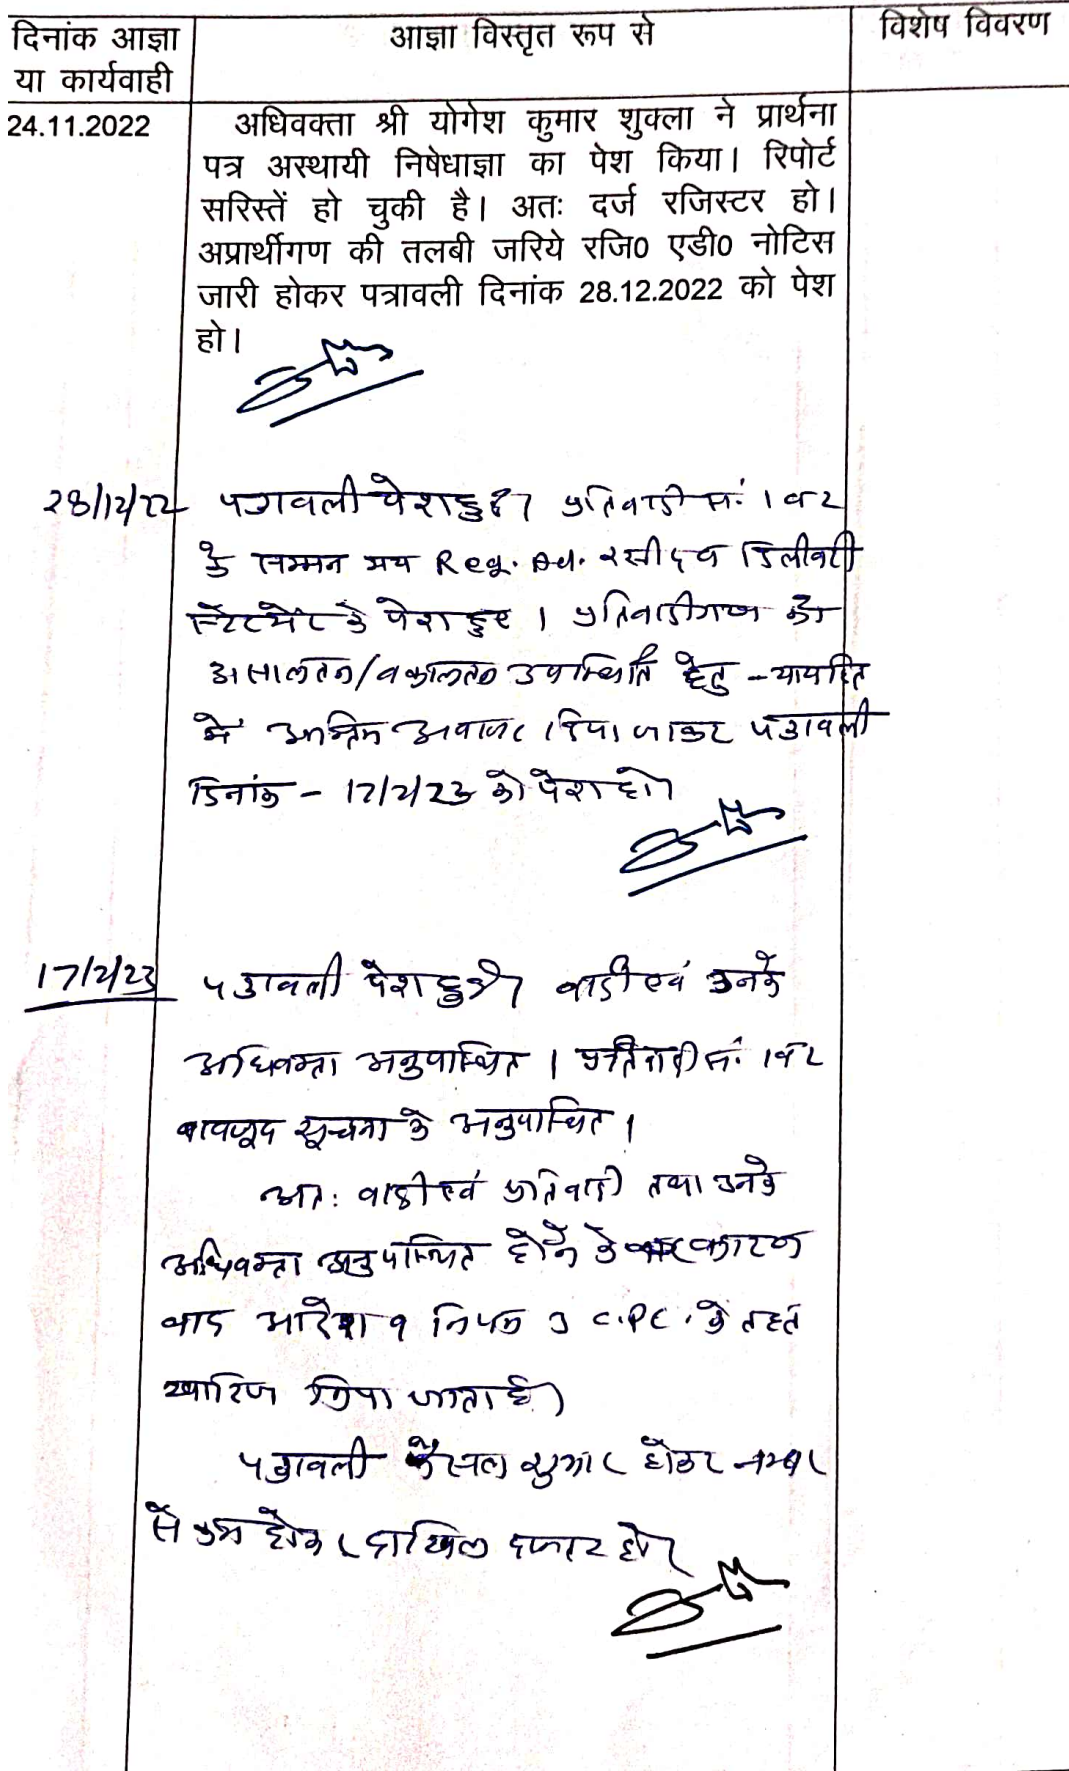 दिनांक आज्ञा या कार्यवाही
आज्ञा विस्तृत रूप से
विशेष विवरण
24.11.2022
अधिवक्ता श्री योगेश कुमार शुक्ला ने प्रार्थना
पत्र अस्थायी निषेधाज्ञा का पेश किया। रिपोर्ट
सरिस्तें हो चुकी है। अतः दर्ज रजिस्टर हो।
अप्रार्थीगण की तलबी जरिये रजि0 एडी0 नोटिस
जारी होकर पत्रावली दिनांक 28.12.2022 को पेश
हो।
28/12/22
पत्रावली पेश हुई। प्रतिवादी सं. 1 व 2
के सम्मन मय Reg. Ad. रसीद व डिलीवरी
स्टेटमेंट के पेश हुए। प्रतिवादीगण को
असालतन/वकालतन उपस्थिति हेतु न्यायहित
में अन्तिम अवसर दिया जाकर पत्रावली
दिनांक - 17/2/23 को पेश हो।
17/2/23
पत्रावली पेश हुई। वादी एवं उनके
अधिवक्ता अनुपस्थित। प्रतिवादी सं. 1 व 2
बावजूद सूचना के अनुपस्थित।
अतः वादी एवं प्रतिवादी तथा उनके
अधिवक्ता अनुपस्थित होने के कारण
वाद आदेश 9 नियम 3 C.P.C. के तहत
खारिज किया जाता है।
पत्रावली फैसल शुमार होकर नम्बर
से कम होकर दाखिल दफ्तर हो।